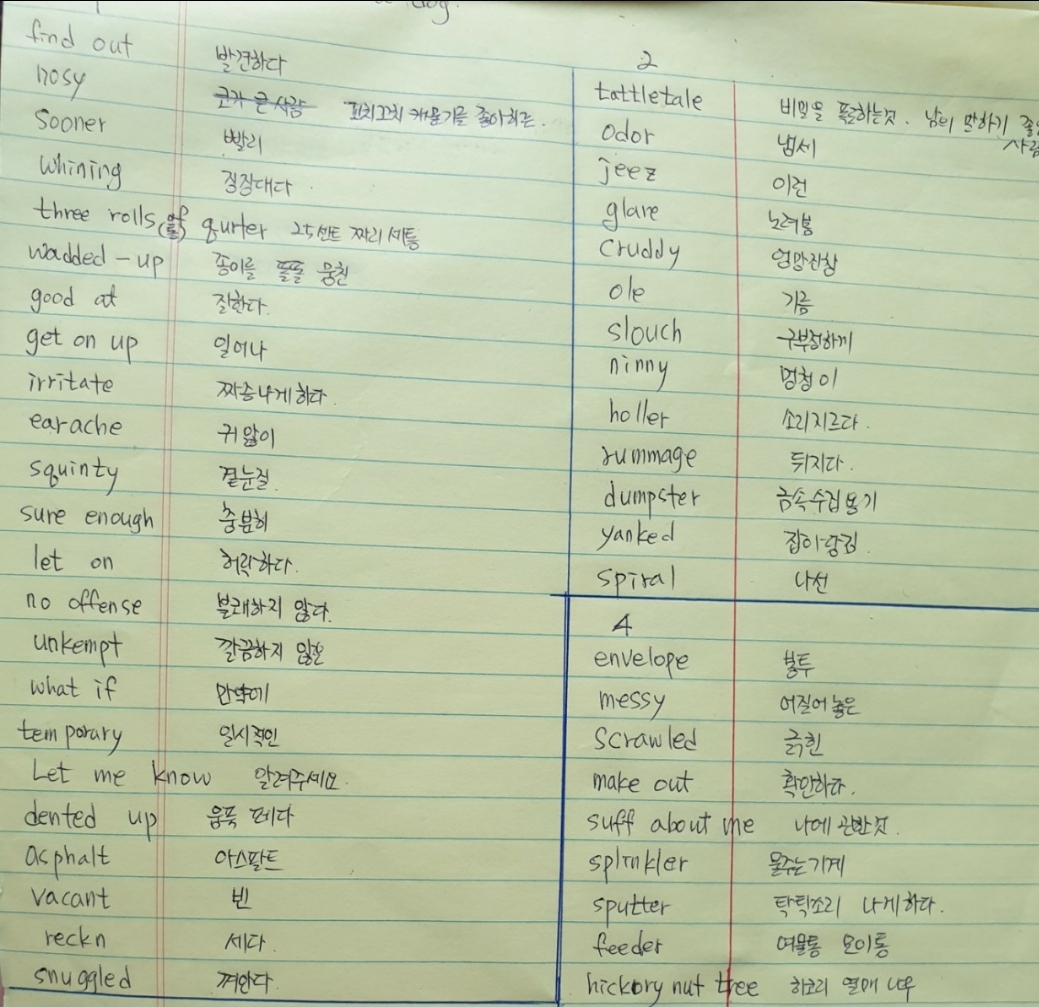 find out 발견하다
nosy 코가 큰 사람 꼬치꼬치 캐묻기를 좋아하는.
Sooner 빨리
whining 징징대다.
three rolls of (롤) qurter 25센트 짜리 세통
wadded-up 종이를 똘똘 뭉친
good at 잘한다.
get on up 일어나
irritate 짜증나게하다.
earache 귀앓이
squinty 곁눈질.
sure enough 충분히
let on 허락하다.
no offense 불쾌하지 않다.
unkempt 깔끔하지 않은
what if 만약에
temporary 일시적인
Let me know 알려주세요.
dented up 움푹 페다
asphalt 아스팔트
vacant 빈
reckn 세다.
snuggled 껴안다.
2
tattletale 비밀을 폭로하는것. 남의 말하기
사람
odor 냄세
jeez 이런
glare 노려봄
cruddy 엉망진창
ole 기름
slouch 구부정하게
ninny 멍청이
holler 소리지르다.
rummage 뒤지다.
dumpster 금속수집용기
yanked 잡아당김.
spiral 나선
4
envelope 봉투
messy 어질어놓은
scrawled 긁힌
make out 확인하다.
suff about me 나에 관한것.
splinkler 물주는기계
sputter 탁탁소리 나게하다.
feeder 여물통 모이통
hickory nut tree 히코리 열매 나무